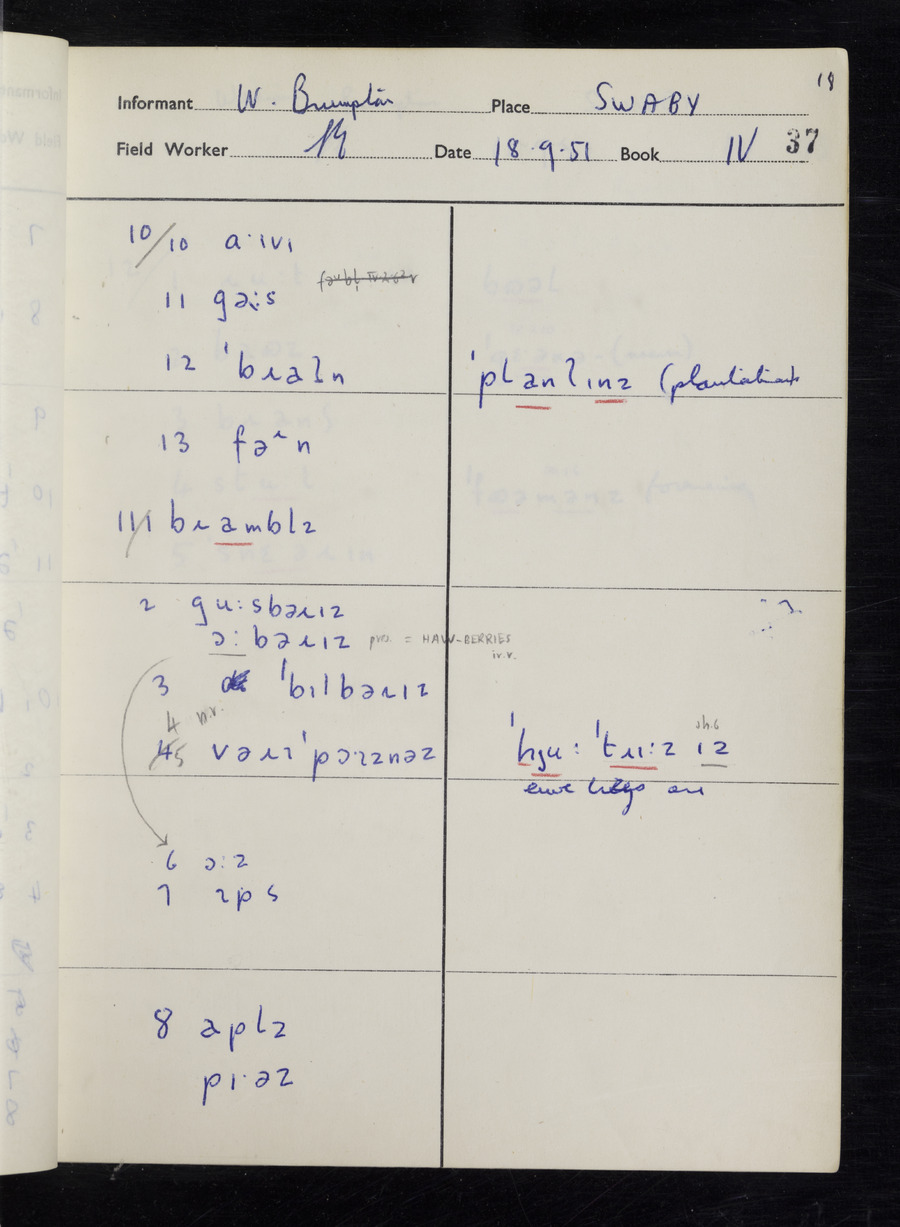 18
Informant W. Brumpton Place SWABY
Field Worker Date 18.9.51 Book IV 37
10/10 aˑɪvɪ
11 gəːs
12 ˈbɹaʔn̩ ˈplanʔɪnz (plantations
13 fəˑn
11/1 bɹambl̩z
2 guːsbəɹɪz
ɔːbəɹɪz pres. = HAW-BERRIES
i.r.v.
3 ˈbɪlbəɹɪz
4 n.r.
5 vəɹɪˈpɔɪznəz ˈhjuːˈtɹiːz ɪz
6 ɔːz
7 ɪps
8 aplz
pɪˑəz